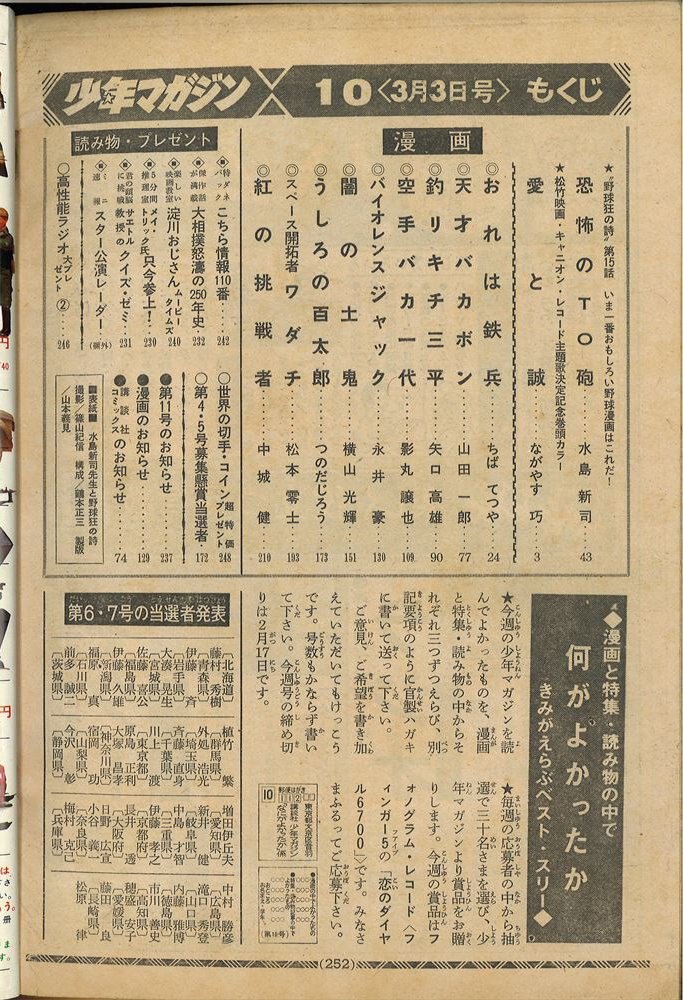 少年マガジン
10〈3月3日号〉もくじ
漫画
★“野球狂の詩”第15話 いま一番おもしろい野球漫画はこれだ！
恐怖のTO砲……水島新司 43
★松竹映画・キャニオン・レコード主題歌決定記念巻頭カラー
愛と誠……ながやす巧 3
◎おれは鉄兵……ちばてつや 24
◎天才バカボン……山田一郎 77
◎釣りキチ三平……矢口高雄 90
◎空手バカ一代……影丸譲也 109
◎バイオレンスジャック……永井豪 130
◎闇の土鬼……横山光輝 151
◎うしろの百太郎……つのだじろう 173
◎スペース開拓者ワダチ……松本零士 193
◎紅の挑戦者……中城健 210
読み物・プレゼント
特ダネパック こちら情報110番……242
傑作話が満載 大相撲怒濤の250年史……232
楽しい映画教室 淀川おじさんムービータイムズ 240
5分間推理室 メイ・トリック氏只今参上！……230
君の頭脳に挑戦 サエトル教授のクイズ・ゼミ……231
ミニ速報 スター公演レーダー……(欄外)
○高性能ラジオ大プレゼント②……246
○世界の切手・コイン超特価プレゼント 248
○第4・5号募集懸賞当選者……172
●第11号のお知らせ……237
●漫画のお知らせ……129
●講談社コミックスのお知らせ……74
■表紙■ 水島新司先生と野球狂の詩
撮影／篠山紀信 構成／鶴本正三 製版
／山本義見
◆漫画と特集・読み物の中で
何がよかったか
きみがえらぶベスト・スリー◆
★今週の少年マガジンを読
んでよかったものを、漫画
と特集・読み物の中からそ
れぞれ三つずつえらび、別
記要項のように官製ハガキ
に書いて送って下さい。
ご意見、ご希望を書き加
えていただいてもけっこう
です。号数もかならず書い
て下さい。今週号の締め切
りは2月17日です。
★毎週の応募者の中から抽
選で三十名さまを選び、少
年マガジンより賞品をお贈
りします。今週の賞品はフ
ォノグラム・レコード〈フ
ィンガー5の「恋のダイヤ
ル6700」〉です。みなさ
まふるってご応募下さい。
郵便はがき
10
112
東京都文京区音羽
講談社 少年マガジン
なにがよかったか係
(第10号)
第6・7号の当選者発表
〔北海道〕
藤村秀樹
〔青森県〕
伊藤斉
〔岩手県〕
大湊晃生
〔宮城県〕
佐藤喜公
〔福島県〕
伊藤久雄
〔新潟県〕
福原真
〔石川県〕
前多誠二
〔茨城県〕
植竹繁
〔群馬県〕
外処浩光
〔埼玉県〕
斉藤直身
〔千葉県〕
川上一渡
〔東京都〕
原島正利
大塚昌孝
〔神奈川県〕
宿岡功
〔山梨県〕
今沢彰
〔静岡県〕
増田伊丘夫
〔愛知県〕
新井健
〔岐阜県〕
中島才智
〔三重県〕
伊藤孝之
〔京都府〕
長井透
〔大阪府〕
日野広宣
小谷義一
〔奈良県〕
梅村克己
〔兵庫県〕
中村勝彦
〔広島県〕
滝口秀登
〔山口県〕
内藤雅博
〔徳島県〕
市川善史
〔高知県〕
穂盛安子
〔愛媛県〕
藤田良
〔長崎県〕
松原律
(252)